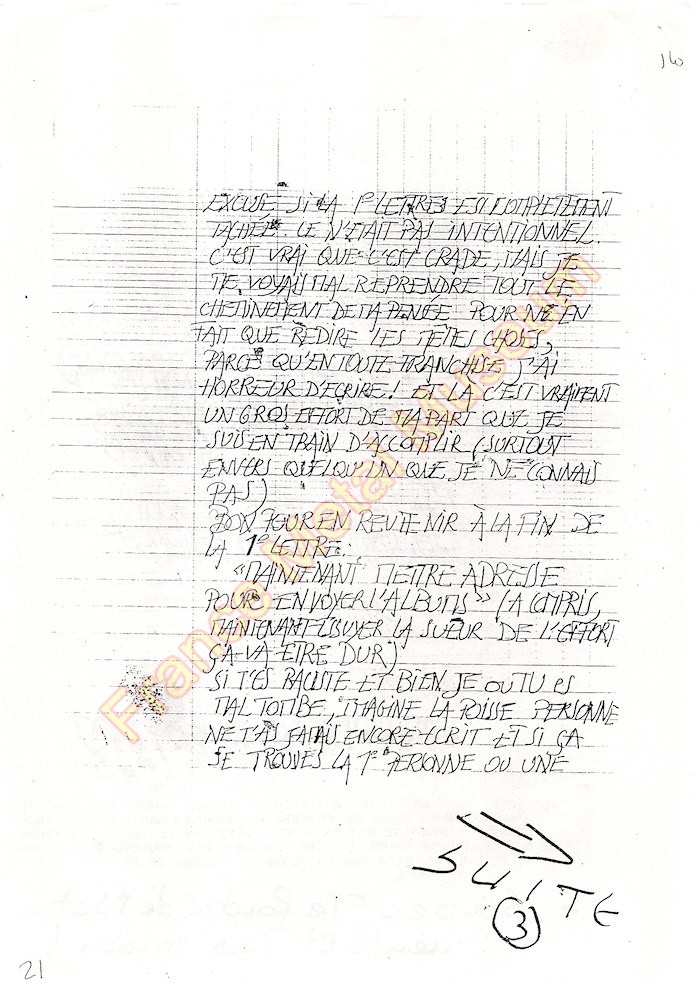 16
EXCUSE SI LA 1° LETTRES EST COMPLETEMENT
TACHÉE. CE N'ETAIT PAS INTENTIONNEL.
C'EST VRAI QUE C'EST CRADE, MAIS JE
ME VOYAIS MAL REPRENDRE TOUT LE
CHEMINEMENT DE MA PENSÉE POUR NE EN
FAIT QUE REDIRE LES MÊMES CHOSES,
PARCE QU'EN TOUTE FRANCHISE J'AI
HORREUR D'ECRIRE! ET LÀ C'EST VRAIMENT
UN GROS EFFORT DE MA PART QUE JE
SUIS EN TRAIN D'ACCOMPLIR (SURTOUT
ENVERS QUELQU'UN QUE JE NE CONNAIS
PAS)
BON POUR EN REVENIR À LA FIN DE
LA 1° LETTRE:
"MAINTENANT METTRE ADRESSE
POUR ENVOYER L'ALBUMS" (A COMPRIS,
MAINTENANT ESSUYER LA SUEUR DE L'EFFORT
ÇA-VA-ETRE DUR)
SI T'ES RACISTE ET BIEN JE OU TU ES
MAL TOMBE, IMAGINE LA POISSE PERSONNE
NE T'AS JAMAIS ENCORE ECRIT ET SI ÇA
SE TROUVES LA 1° PERSONNE OU UNE
SUITE
3
21
Franco Metal Museum